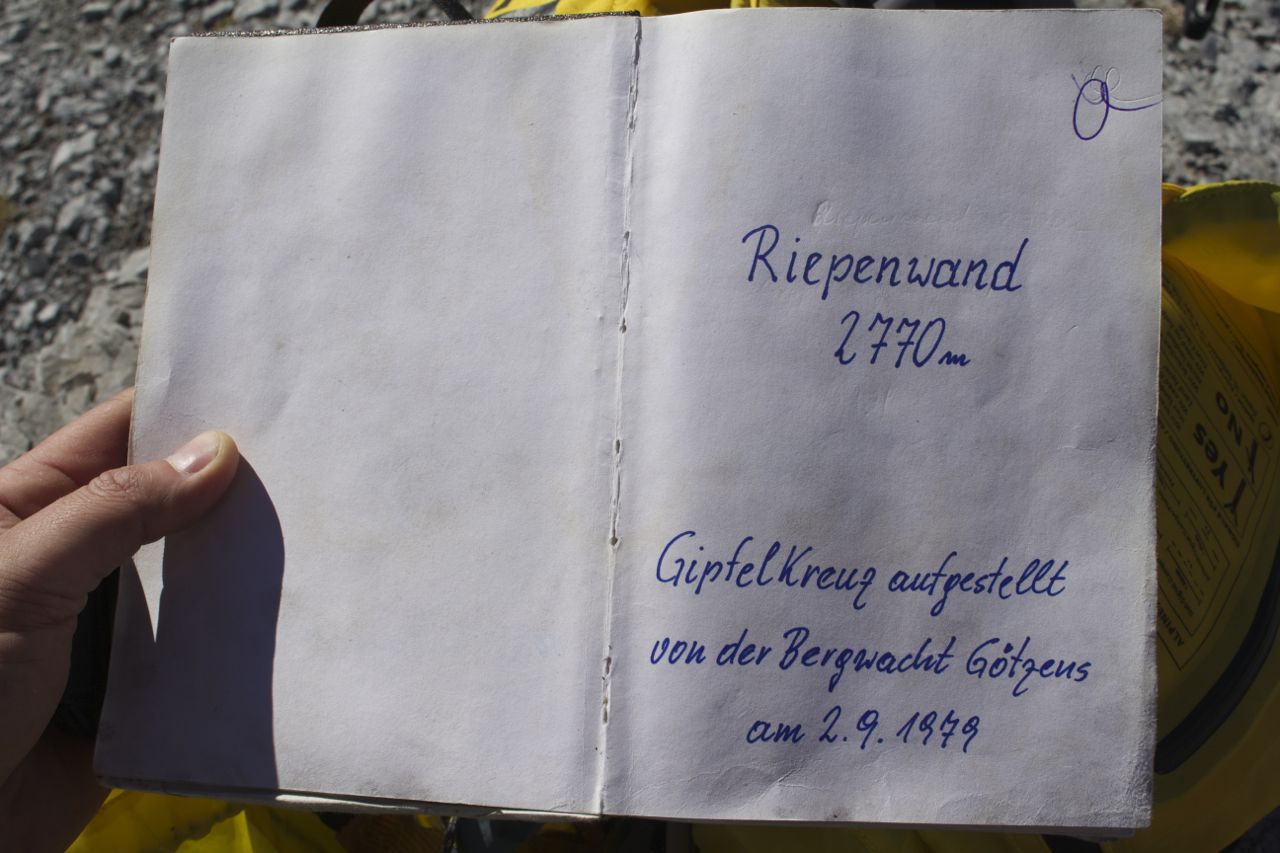 Riepenwand
2770m
Gipfelkreuz aufgestellt
von der Bergwacht Götzens
am 2.9.1979
Yes
No
ALPINE